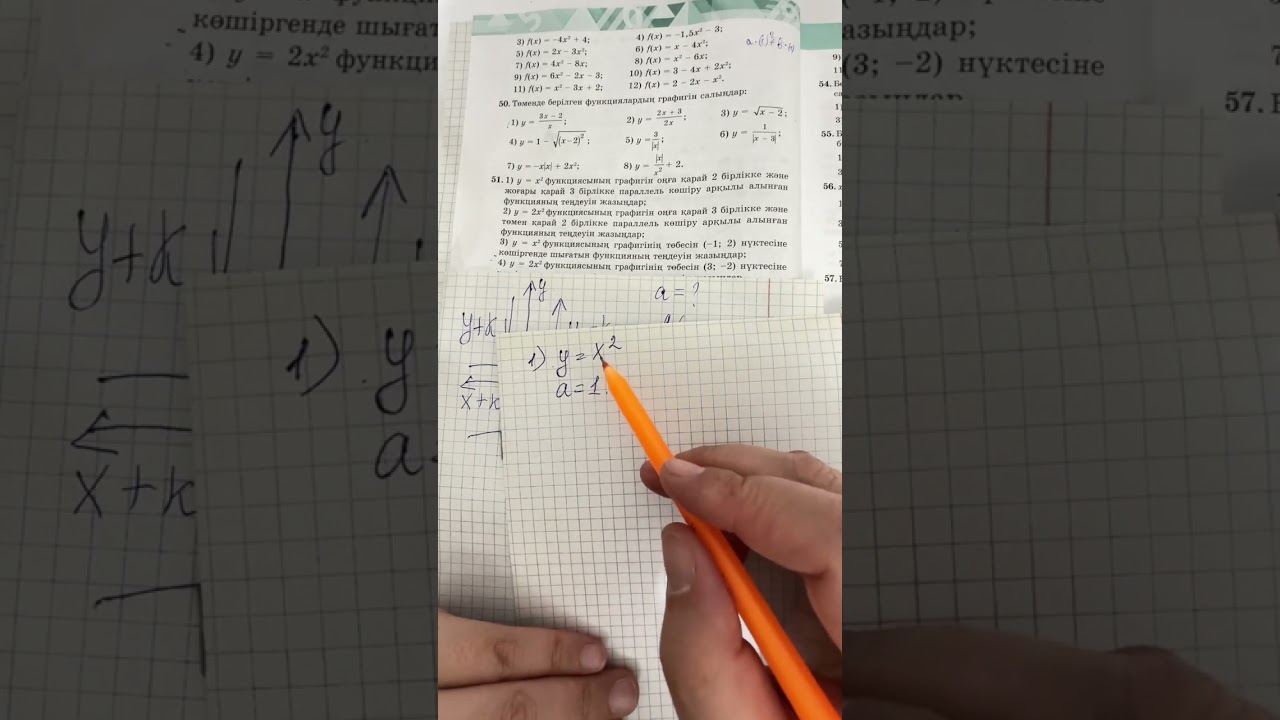 3) f(x) = −4x² + 4; 4) f(x) = −1,5x² − 3;
5) f(x) = 2x − 3x²; 6) f(x) = x − 4x²;
7) f(x) = 4x² − 8x; 8) f(x) = x² − 6x;
9) f(x) = 6x² − 2x − 3; 10) f(x) = 3 − 4x + 2x²;
11) f(x) = x² − 3x + 2; 12) f(x) = 2 − 2x − x².
50. Төменде берілген функциялардың графигін салыңдар:
1) y = (3x − 2)/x; 2) y = (2x + 3)/(2x); 3) y = √(x − 2);
4) y = 1 − √((x−2)²); 5) y = 3/|x|; 6) y = 1/|x − 3|;
7) y = −x|x| + 2x²; 8) y = |x|/x² + 2.
51. 1) y = x² функциясының графигін оңға қарай 2 бірлікке және
жоғары қарай 3 бірлікке параллель көшіру арқылы алынған
функцияның теңдеуін жазыңдар;
2) y = 2x² функциясының графигін оңға қарай 3 бірлікке және
төмен қарай 2 бірлікке параллель көшіру арқылы алынған
функцияның теңдеуін жазыңдар;
3) y = x² функциясының графигінің төбесін (−1; 2) нүктесіне
көшіргенде шығатын функцияның теңдеуін жазыңдар;
4) y = 2x² функциясының графигінің төбесін (3; −2) нүктесіне
y
a = ?
y+k
x+k
1) y = x²
a = 1.
көшіргенде шығат
4) y = 2x² функ
y
y+k
1) y
a
x+k
азыңдар;
(3; −2) нүктесіне
9)
11
54.
55.
56.
57.
57.